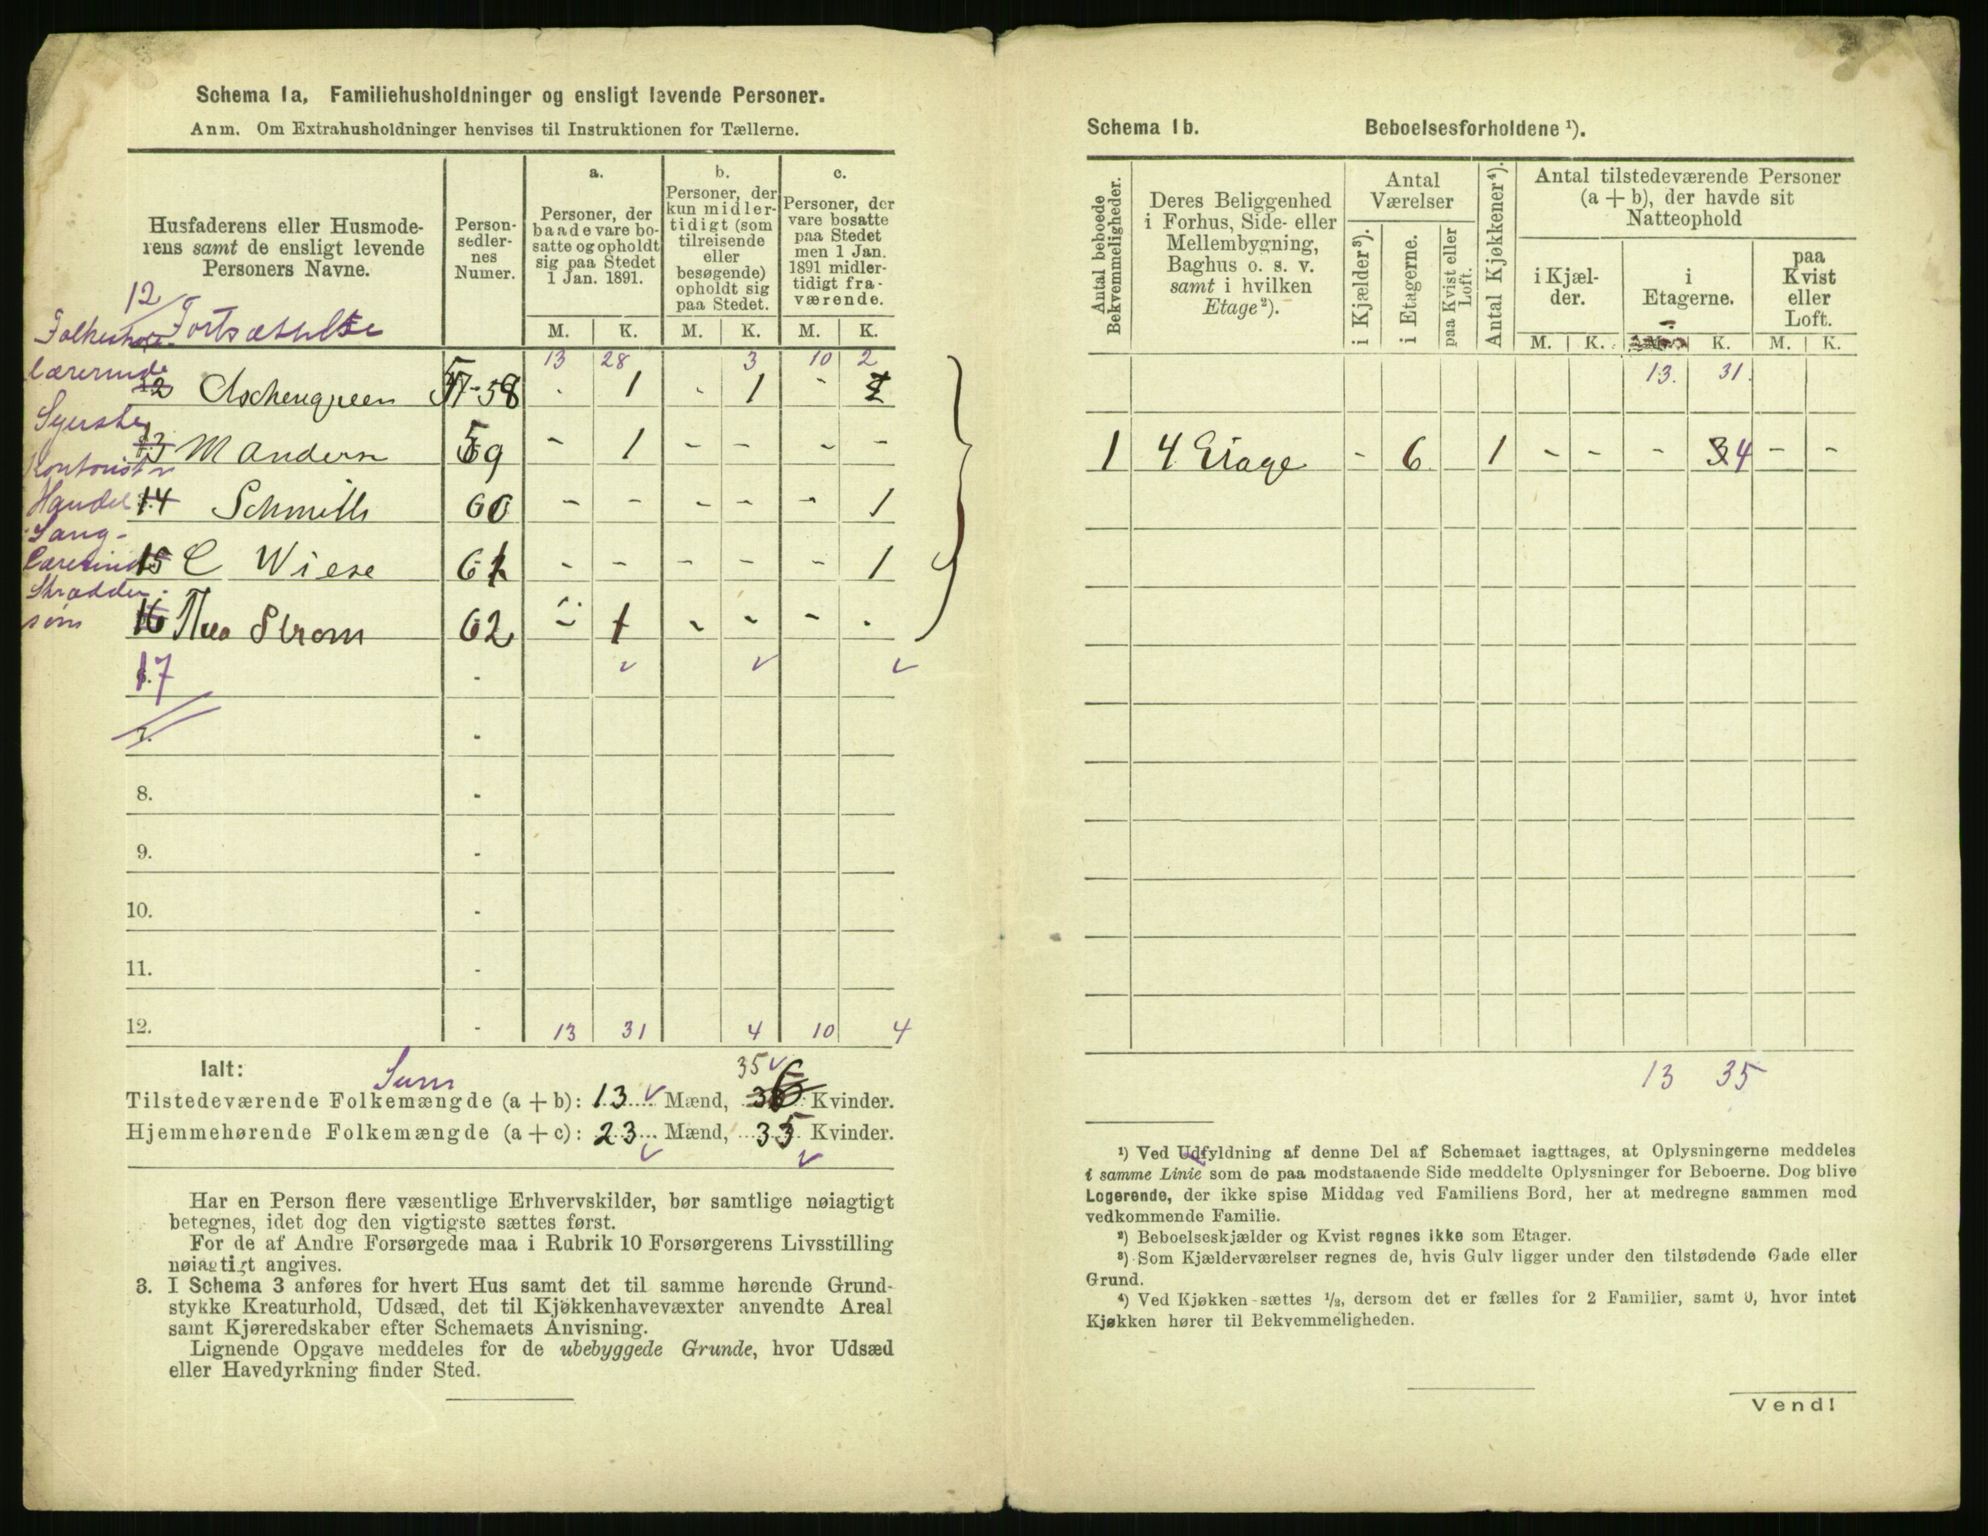 Schema 1a. Familiehusholdninger og ensligt levende Personer.
Anm. Om Extrahusholdninger henvises til Instruktionen for Tællerne.
Husfaderens eller Husmode-
rens samt de ensligt levende
Personers Navne.
Person-
sedler-
nes
Numer.
a.
Personer, der
baade vare bo-
satte og opholdt
sig paa Stedet
1 Jan. 1891.
b.
Personer, der
kun midler-
tidigt (som
tilreisende
eller
besøgende)
opholdt sig
paa Stedet.
c.
Personer, der
vare bosatte
paa Stedet
men 1 Jan.
1891 midler-
tidigt fra-
værende.
M. K. M. K. M. K.
12
Fortsættelse
13 28 3 10 2
Lærerinde
Aschengreen 57-58 - 1 - 1 -
13 M Andersn 59 - 1 - - - -
Kontorist
Handel 14 Schmith 60 - - - - - 1
Sang-
Lærerinde 15 C Wiese 61 - - - - - 1
Skrædder-
søm 16 Thea Strøm 62 - 1 - - - -
17 -
7. -
8. -
9. -
10. -
11. -
12. - 13 31 4 10 4
Ialt:
Sum
35
Tilstedeværende Folkemængde (a + b): 13 Mænd, 36 Kvinder.
Hjemmehørende Folkemængde (a + c): 23 Mænd, 35 Kvinder.
Har en Person flere væsentlige Erhvervskilder, bør samtlige nøiagtigt
betegnes, idet dog den vigtigste sættes først.
For de af Andre Forsørgede maa i Rubrik 10 Forsørgerens Livsstilling
nøiagtigt angives.
3. I Schema 3 anføres for hvert Hus samt det til samme hørende Grund-
stykke Kreaturhold, Udsæd, det til Kjøkkenhavevæxter anvendte Areal
samt Kjøreredskaber efter Schemaets Anvisning.
Lignende Opgave meddeles for de ubebyggede Grunde, hvor Udsæd
eller Havedyrkning finder Sted.
Schema 1b. Beboelsesforholdene ¹).
Antal beboede
Bekvemmeligheder.
Deres Beliggenhed
i Forhus, Side- eller
Mellembygning,
Baghus o. s. v.
samt i hvilken
Etage²).
Antal
Værelser
i Kjælder³).
i Etagerne.
paa Kvist eller
Loft.
Antal Kjøkkener⁴).
Antal tilstedeværende Personer
(a + b), der havde sit
Natteophold
i Kjæl-
der.
i
Etagerne.
paa
Kvist
eller
Loft.
M. K. K. M. K.
13. 31.
1 4 Etage - 6 1 - - - 4 - -
13 35
¹) Ved Udfyldning af denne Del af Schemaet iagttages, at Oplysningerne meddeles
i samme Linie som de paa modstaaende Side meddelte Oplysninger for Beboerne. Dog blive
Logerende, der ikke spise Middag ved Familiens Bord, her at medregne sammen med
vedkommende Familie.
²) Beboelseskjælder og Kvist regnes ikke som Etager.
³) Som Kjælderværelser regnes de, hvis Gulv ligger under den tilstødende Gade eller
Grund.
⁴) Ved Kjøkken sættes ½, dersom det er fælles for 2 Familier, samt 0, hvor intet
Kjøkken hører til Bekvemmeligheden.
Vend!